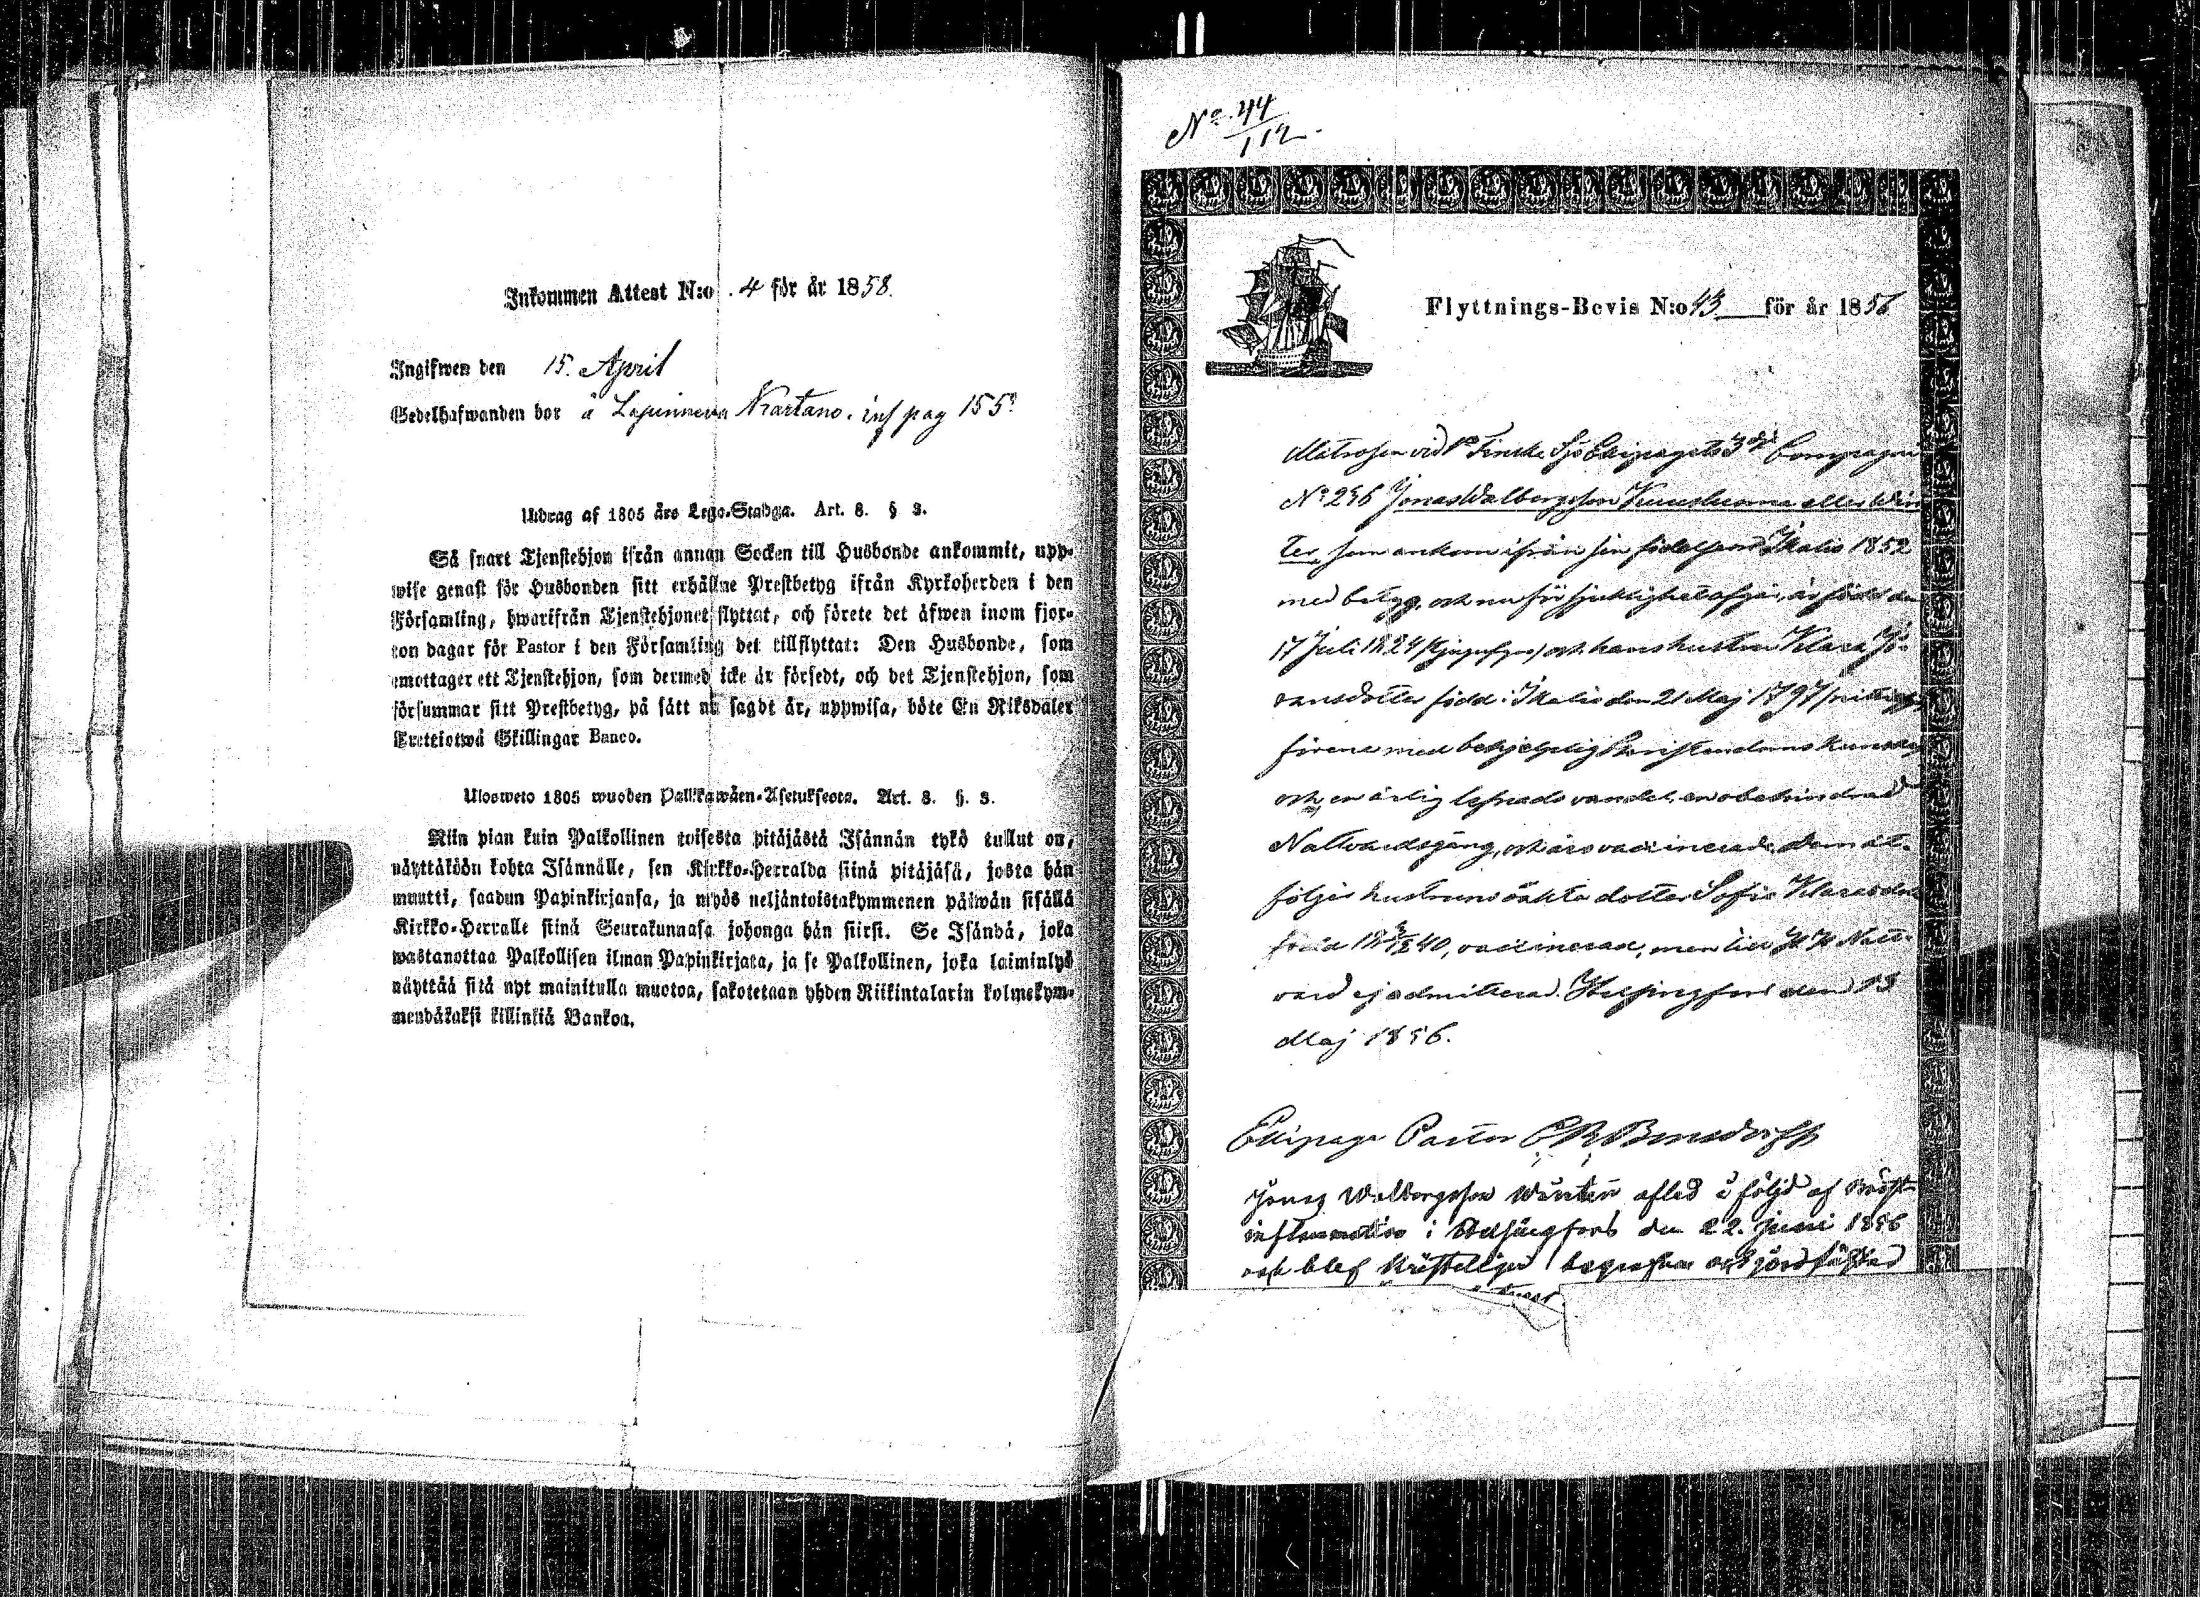 Inkommen Attest N:o 4 för år 1858.
Ingifwen den 15. April
Bedelhafwanden bor å Lapinneva Nartano. inf pag 155.
Utdrag af 1805 års Lego-Stadga. Art. 8. § 3.
Så snart Tjenstehjon ifrån annan Socken till Husbonde ankommit, upp-
wise genast för Husbonden sitt erhållne Prestbetyg ifrån Kyrkoherden i den
Församling, hwarifrån Tjenstehjonet flyttat, och förete det äfwen inom fjor-
ton dagar för Pastor i den Församling det tillflyttat: Den Husbonde, som
emottager ett Tjenstehjon, som dermed icke är försedt, och det Tjenstehjon, som
försummar sitt Prestbetyg, på sätt nu sagdt är, uppwisa, böte En Riksdaler
Trettiotwå Skillingar Banco.
Ulosweto 1805 wuoden Palkkawäen-Asetuksesta. Art. 8. §. 3.
Niin pian kuin Palkollinen toisesta pitäjästä Isännän tykö tullut on,
näyttäköön kohta Isännälle, sen Kirkko-Herralda siinä pitäjäsä, josta hän
muutti, saadun Papinkirjansa, ja myös neljäntoistakymmenen päiwän sisällä
Kirkko-Herralle siinä Seurakunnasa johonga hän siirsi. Se Isändä, joka
wastanottaa Palkollisen ilman Papinkirjata, ja se Palkollinen, joka laiminlyö
näyttää sitä nyt mainitulla muotoa, sakotetaan yhden Riikintalarin kolmekym-
mendäkaksi killinkiä Bankoa.
No. 44
112.
Flyttnings-Bevis N:o 43 för år 1856
Matrosen vid 1a Finska Sjö Ekipagets 3dje Compagni
No 296 Jonas Walbergsson eller Win
ter, som ankom ifrån sin födelseort Ikalis 1852
med betyg, och nu för sjuklighet afgår, är född den
17 Juli 1824 och hans hustru Klara Jo-
hansdotter född i Ikalis den 21 Maj 1797
förena med behjelplig Christendoms kunskap
och en ärlig lefnads vandel, en obehindrad
Nattvardsgång, och äro vaccinerade. Dem åt-
följer hustruns oäkta dotter Sofia Klarasdotter
född 1840, vaccinerad, men till H. H. Natt-
vard ej admitterad. Helsingfors den 13
Maj 1856.
Ekipage Pastor
Jonas Walborgsson Winter afled i följd af bröst
inflammation i Helsingfors den 22. Juni 1856
och blef kristeligen begrafven och jordfästad